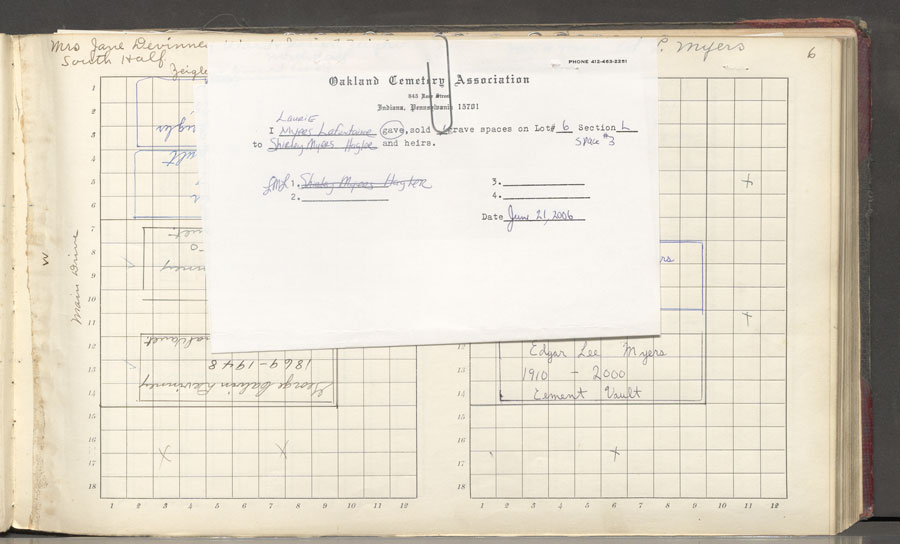 Mrs Jane Devinney
South Half
Zeigle
Myers
6
PHONE 412-463-2291
Oakland Cemetery Association
Indiana, Pennsylvania 15701
Laurie
I Myers Lafontaine gave, sold grave spaces on Lot# 6 Section L
to Shirley Myers Hagler and heirs. Space #3
LML 1. Shirley Myers Hagler 3.
2. 4.
Date June 21, 2006
Main Drive
W
rs
George Calvin Devinney
1869-1948
Edgar Lee Myers
1910 - 2000
Cement Vault
1
2
3
4
5
6
7
8
9
10
11
12
13
14
15
16
17
18
12
13
14
15
16
17
18
1 2 3 4 5 6 7 8 9 10 11 12
1 2 3 4 5 6 7 8 9 10 11 12